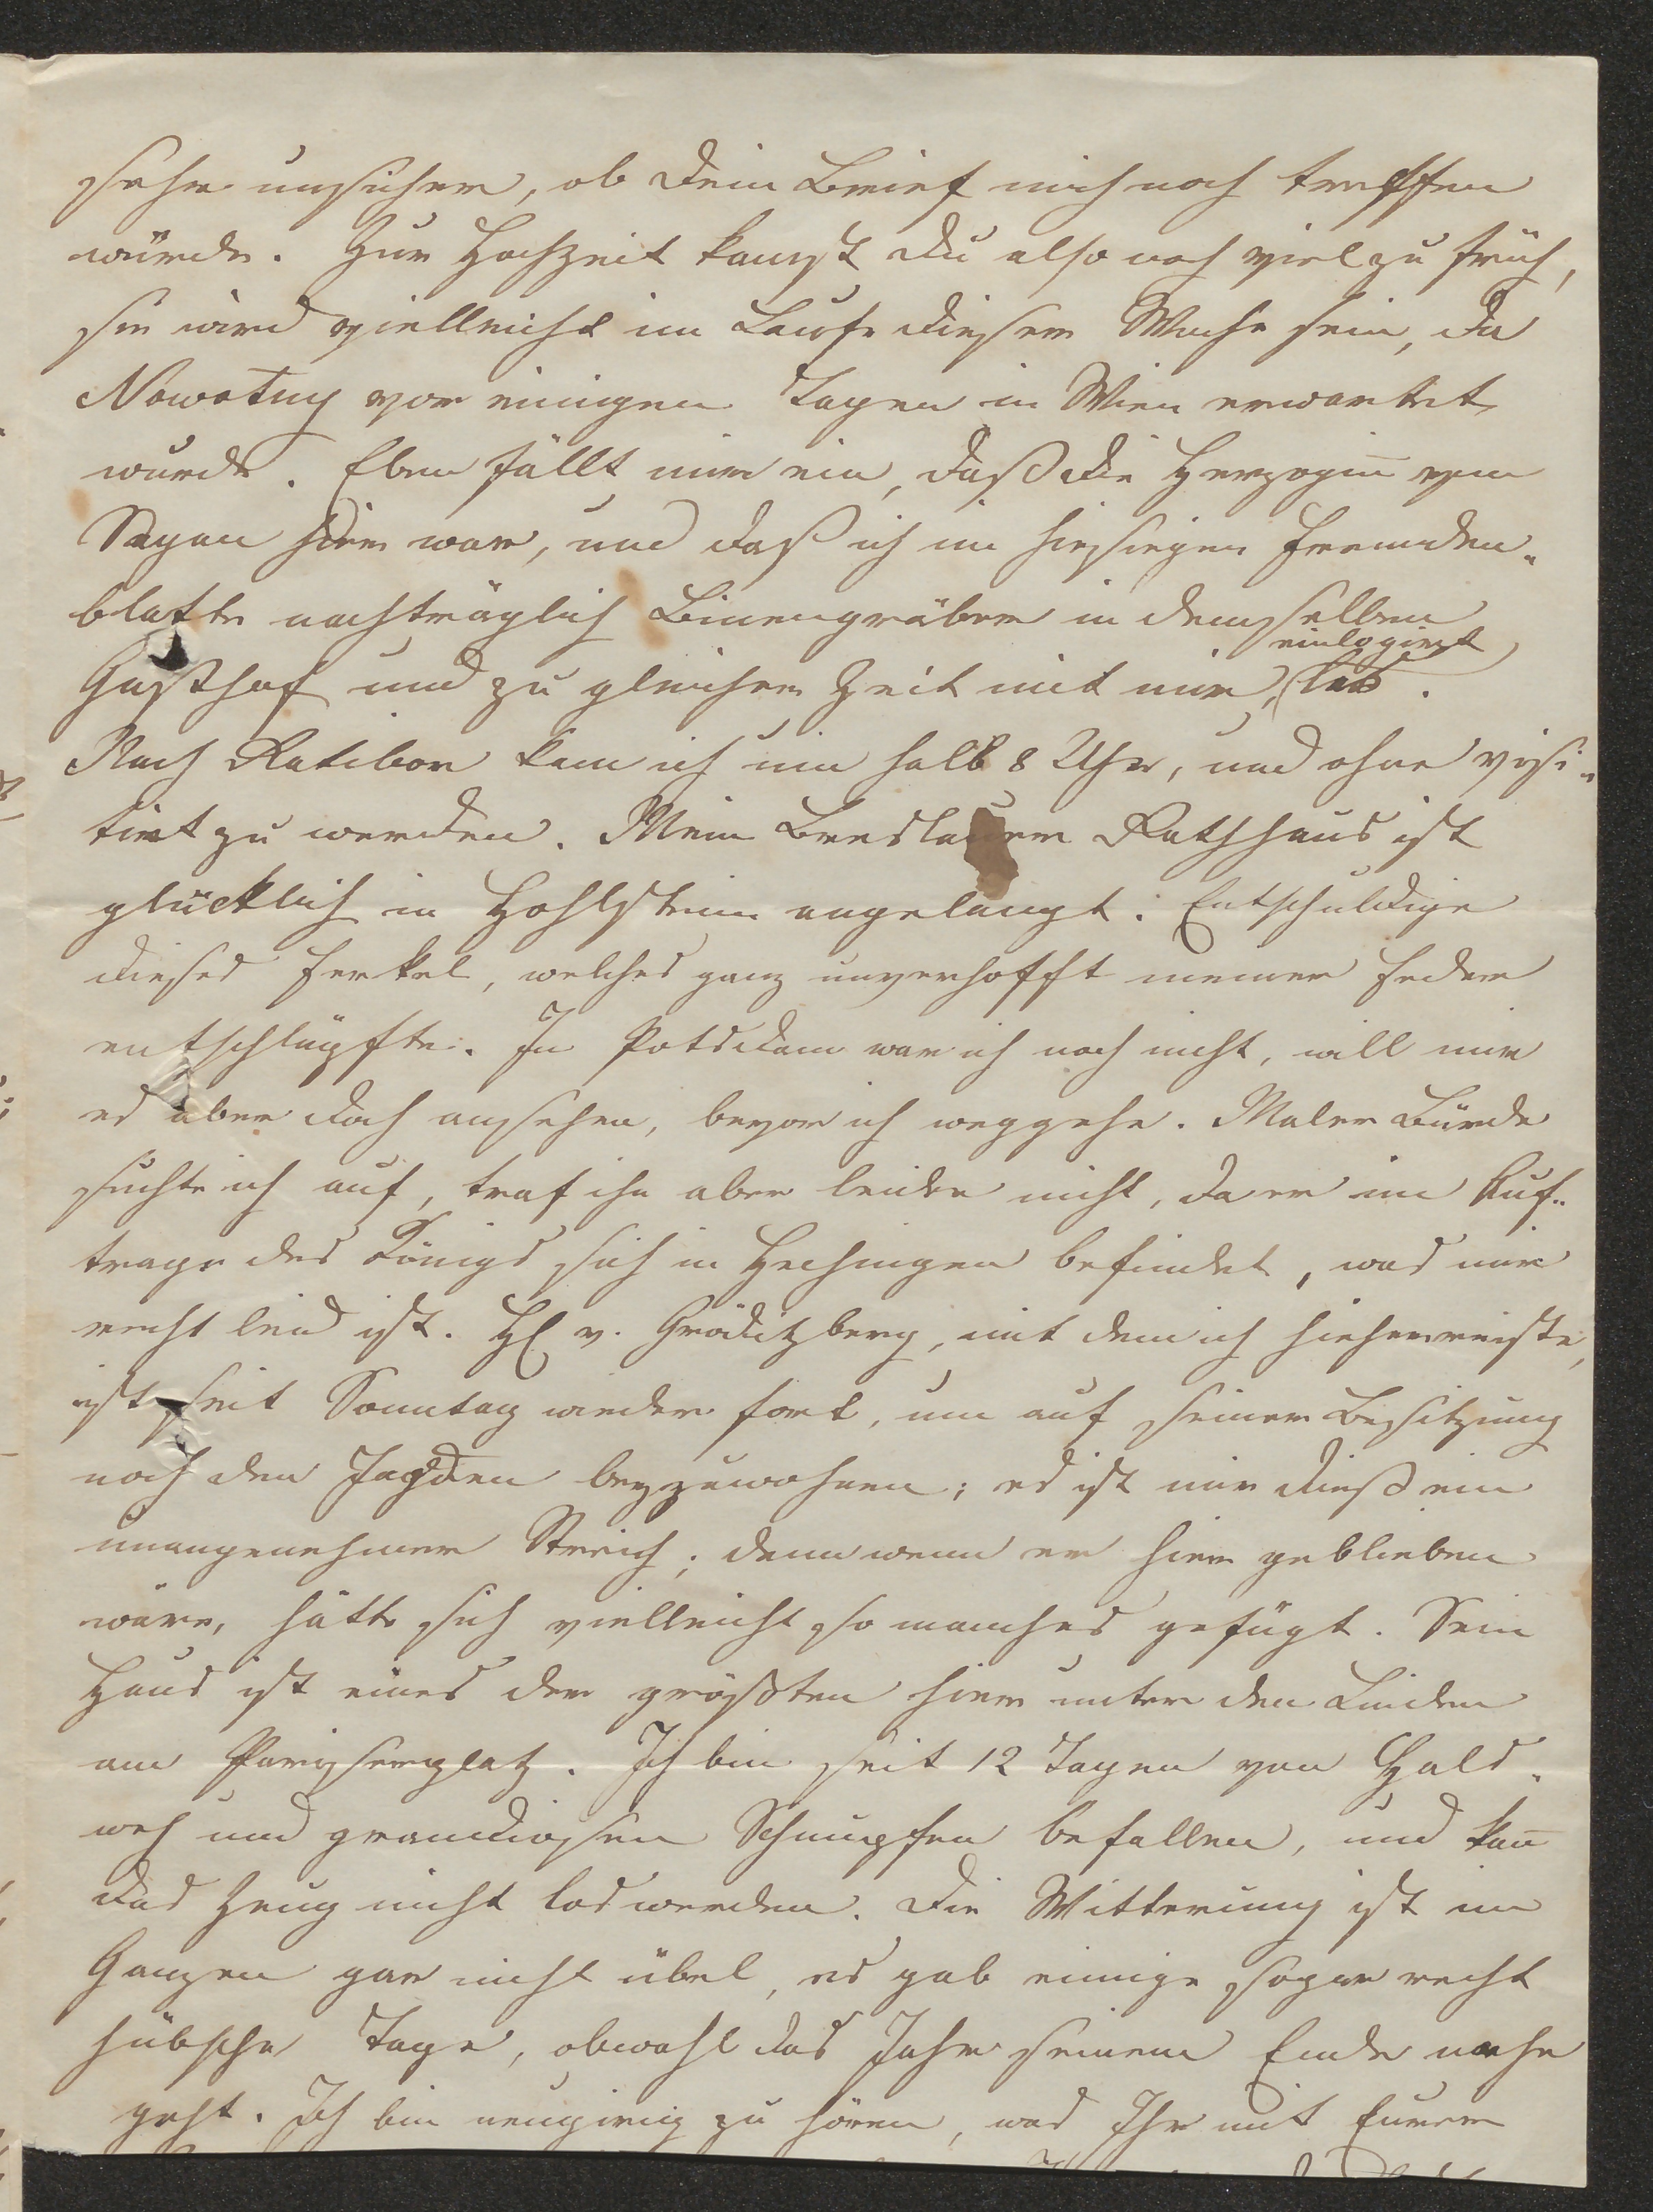 sehr unsicher, ob Dein Brief mich noch treffen
würde. Zur Hochzeit kamst Du also noch viel zu früh,
sie wird vielleicht im Laufe dieser Woche sein, da
Nowotny vor einigen Tagen in Wien erwartet
wurde. Eben fällt mir ein, daß die Herzogin̅ von
Sagan hier war, und daß ich im hiesigen Fremden-
blatte nachträglich Bienengräber in demselben
einlogirt
Gasthof und zu gleicher Zeit mit mir, las.
Nach Ratibor kam ich um halb 8 Uhr, und ohne visi-
tirt zu werden. Mein Breslauer Rathhaus ist
glücklich in Hohlstein angelangt. Entschuldige
dieses Ferkel, welches ganz unverhofft meiner Feder
entschlüpfte. In Potsdam war ich noch nicht, will mir
es aber doch ansehen, bevor ich weggehe. Maler Bürde
suchte ich auf, traf ihn aber leider nicht, da er im Auf-
trage des Königs sich in Hechingen befindet, was mir
recht leid ist. H v. Gröditzberg, mit dem ich hieherreiste,
ist seit Sonntag wieder fort, um auf seiner Besitzung
noch den Jagden beyzuwohnen; es ist mir dieß ein
unangenehmer Streich; denn wenn er hier geblieben
wäre, hätte sich vielleicht so manches gefügt. Sein
Haus ist eines der größten hier unter den Linden
am Pariserplatz. Ich bin seit 12 Tagen von Hals-
weh und grandiosen Schnupfen befallen, und kan̅
das Zeug nicht loswerden. Die Witterung ist im
Ganzen gar nicht übel, es gab einige sogar recht
hübsche Tage, obwohl das Jahr seinem Ende nahe
geht. Ich bin neugirig zu hören, was Ihr mit Eurem